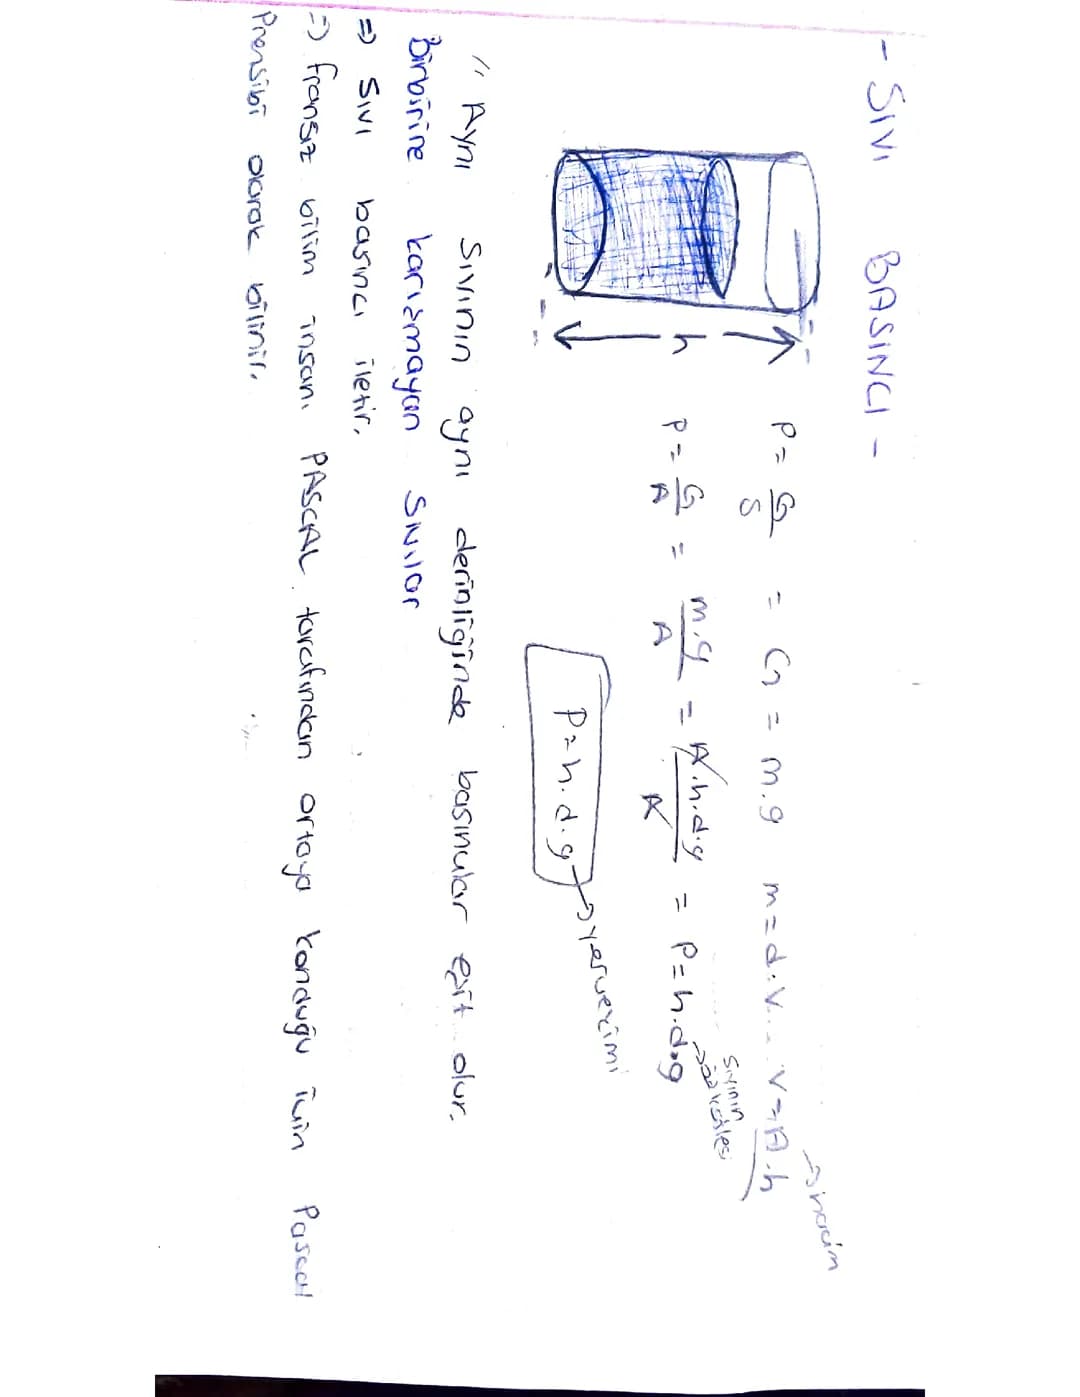 - SIVI BASINCI -
P = G/S = G = m.g m = d.V V = A.h → hacim
P = G/A = m.g/A = A.h.d.g/A = P = h.d.g
→ sıvının özkütlesi
h
P = h.d.g → yerçekimi
" Aynı sıvının aynı derinliğinde basınçlar eşit olur.
Birbirine karışmayan sıvılar
⇒ SIVI basıncı iletir.
⇒ fransız bilim insanı PASCAL tarafından ortaya konduğu için Pascal
Prensibi olarak bilinir.